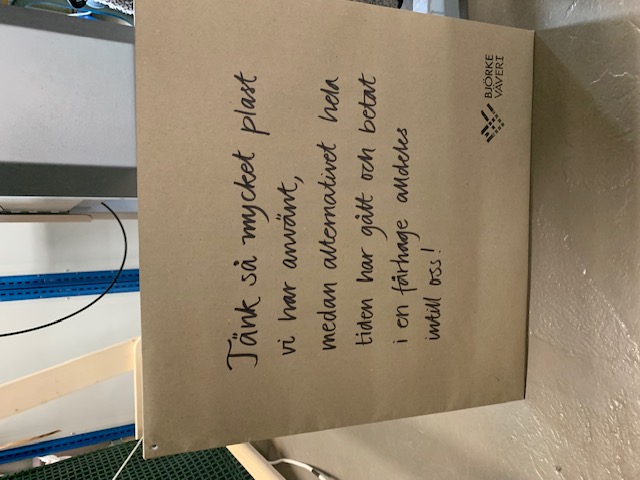 Tänk så mycket plast
vi har använt,
medan alternativet hela
tiden har gått och betat
i en fårhage alldeles
intill oss!
BJÖRKE
VÄVERI